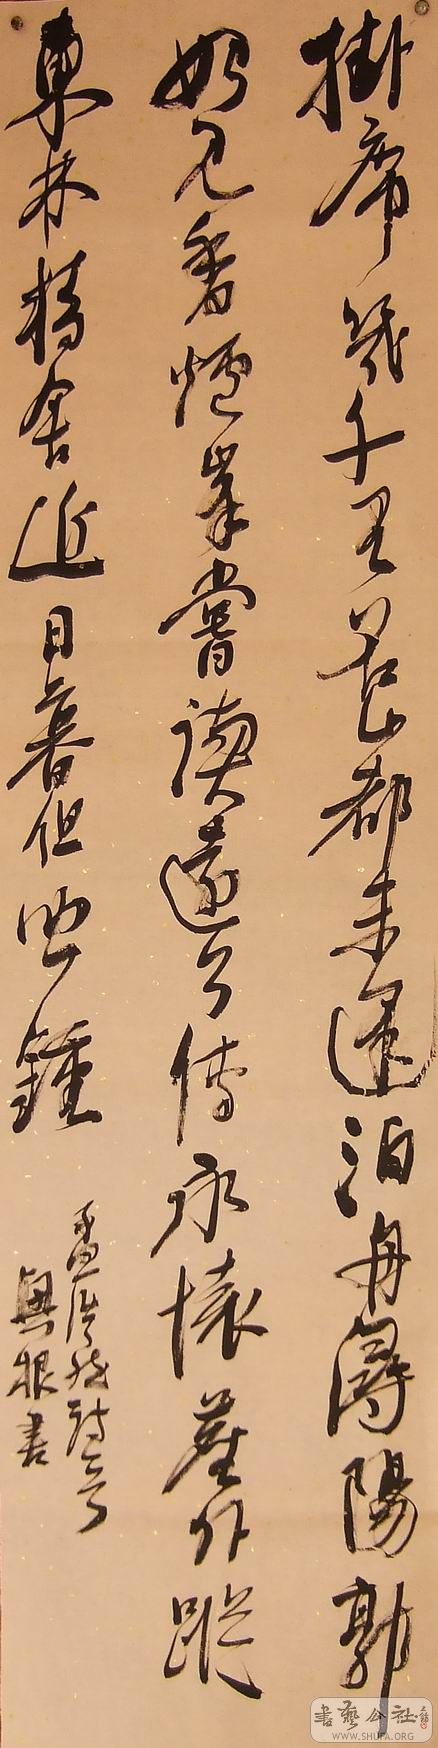 掛席幾千里名山都未逢泊舟潯陽郭
始見香爐峯嘗讀遠公傳永懷塵外蹤
東林精舍近日暮但聞鍾
孟浩然詩
根書
書藝公社
WWW.SHUFA.ORG